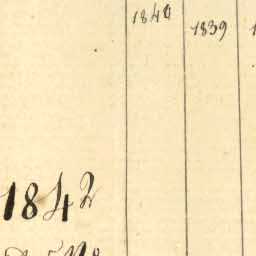 1840 1839
1842